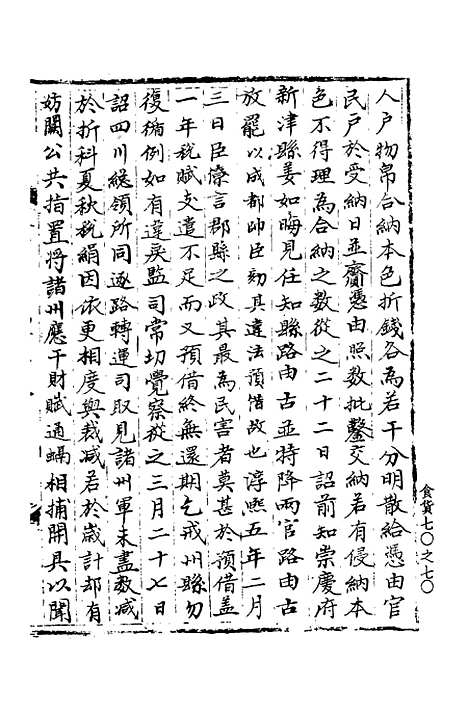 人户物帛合納本色折錢各為若干分明散給憑由官
民戶於受納日並齎憑由照數批鑿交納若有侵納本
色不得理為合納之數從之二十二日詔前知崇慶府
新津縣姜如晦見任知縣路由古並特降兩官路由古
放罷以成都帥臣劾其違法預借故也淳熙五年二月
三日臣僚言郡縣之政其最為民害者莫甚於預借蓋
一年稅賦支遣不足而又預借終無還期乞戒州縣勿
復循例如有違戾監司常切覺察從之三月二十七日
詔四川總領所同逐路轉運司取見諸州軍未盡數減
於折科夏秋稅絹因依更相度與裁減若於歲計却有
妨闕公共指置將諸州應干財賦通融相補開具以聞
食貨七〇之七〇